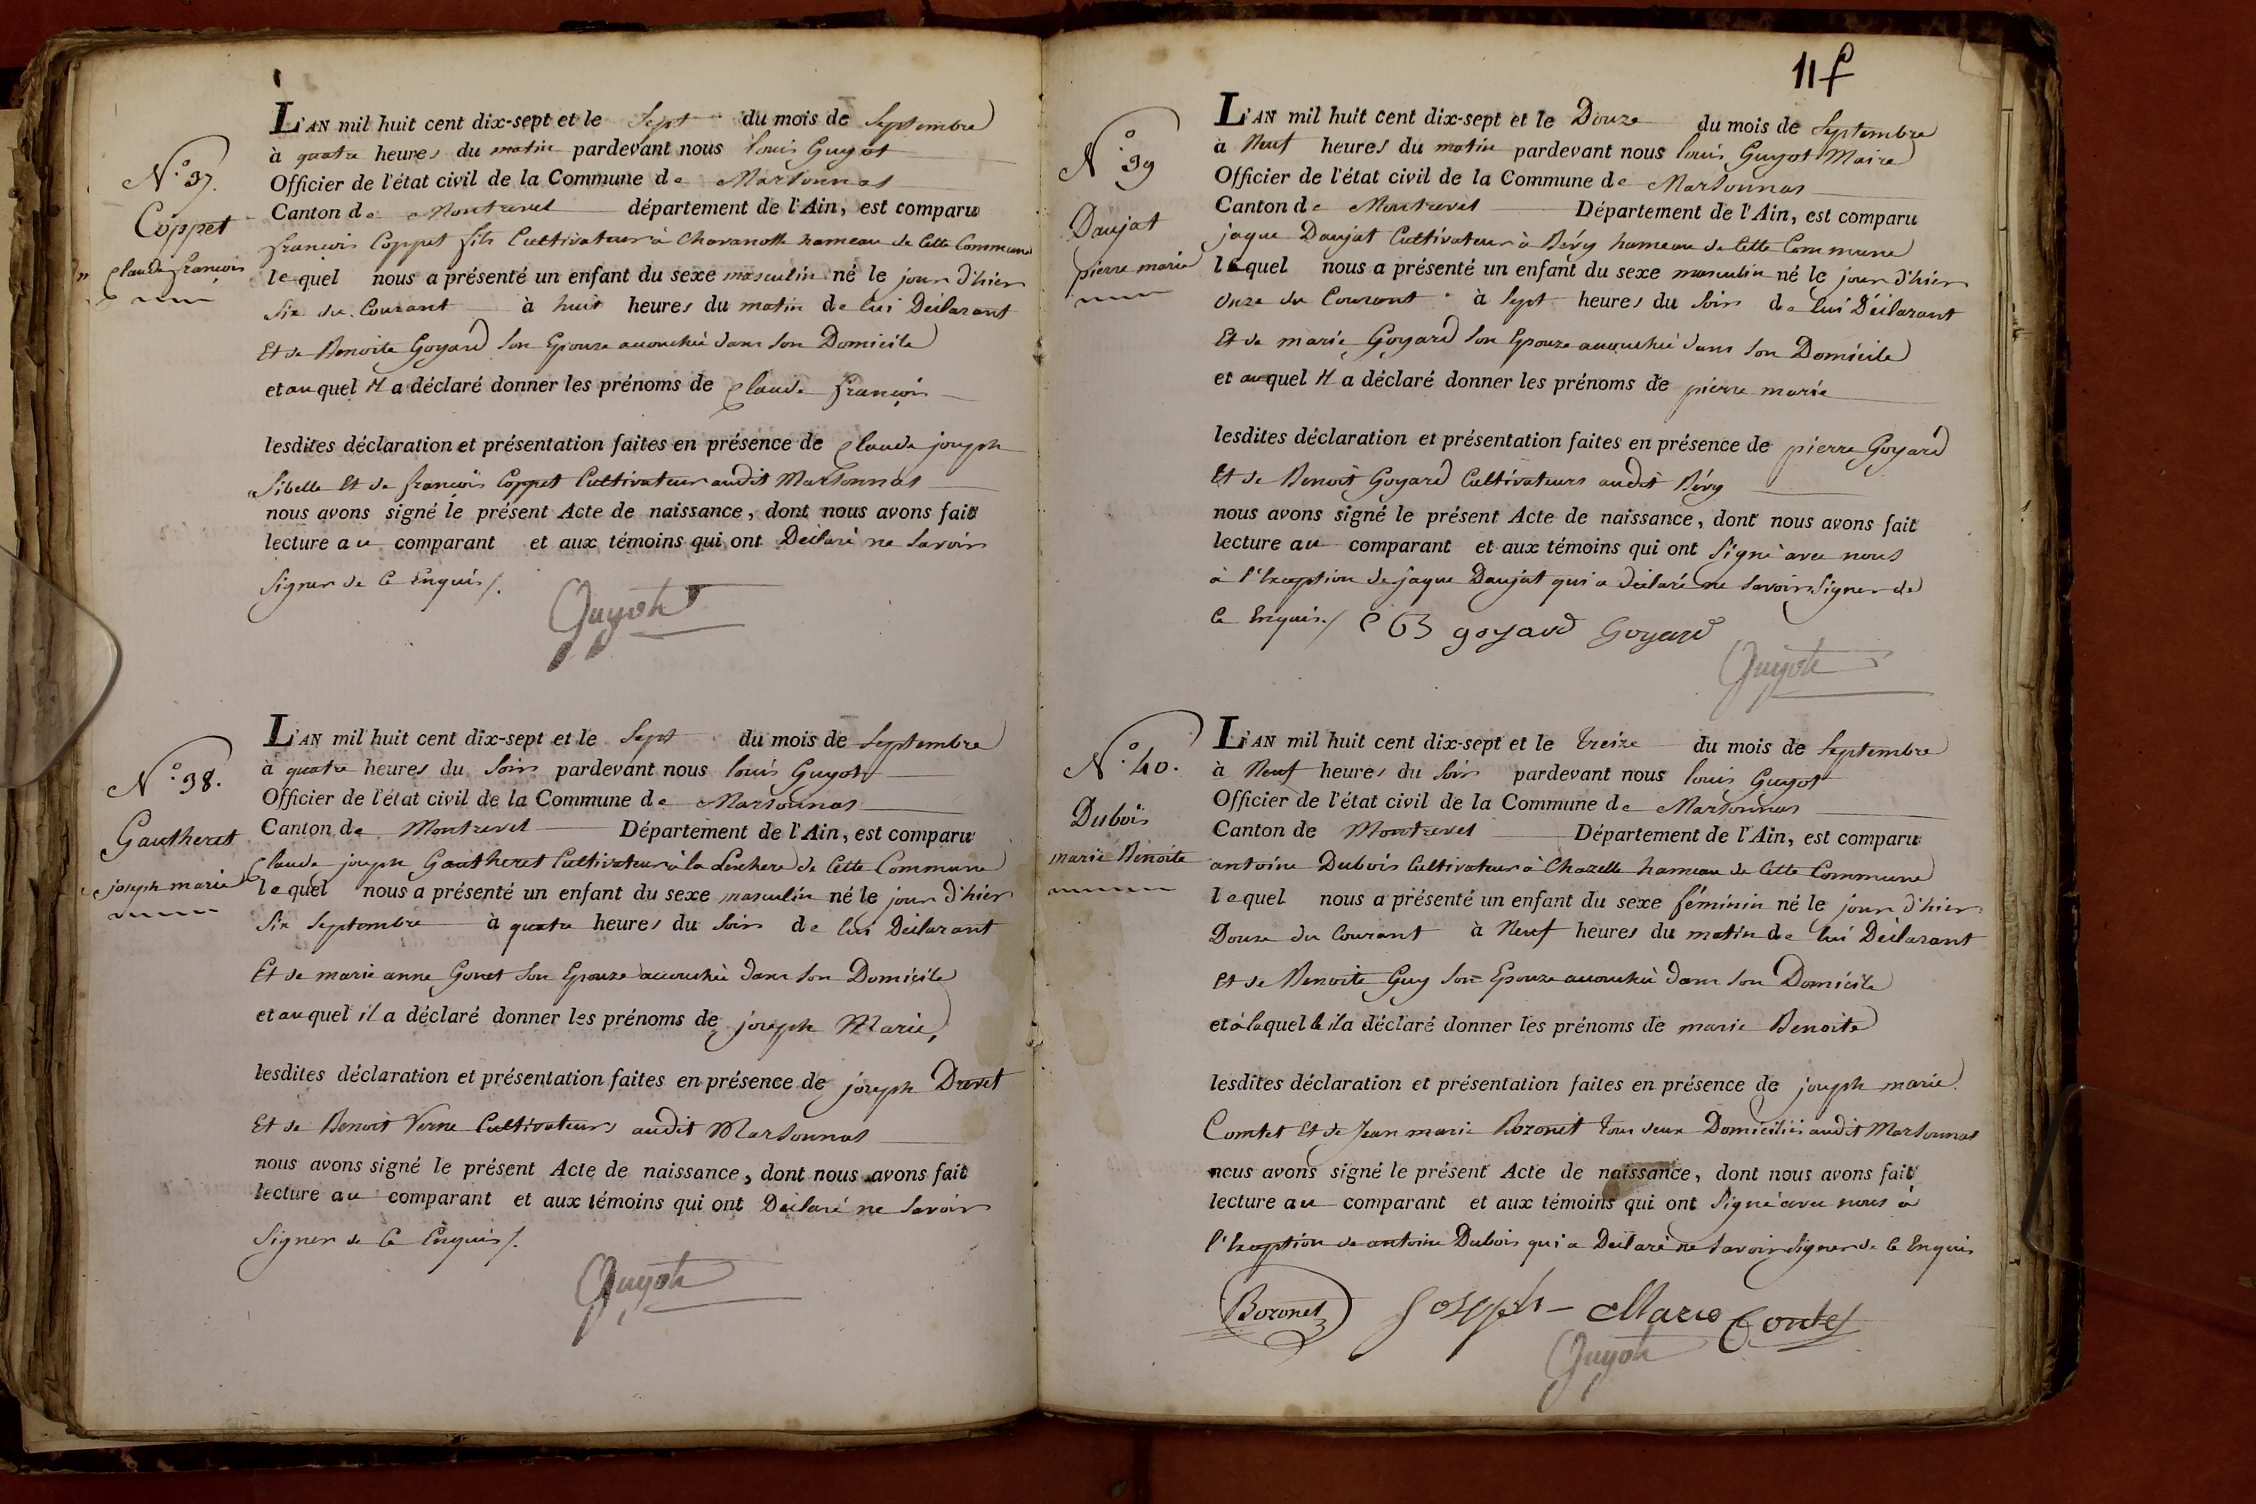 N.° 37.
Coppet
Claude françois
L'AN mil huit cent dix-sept et le Sept du mois de Septembre
à quatre heures du matin pardevant nous louis Guyot
Officier de l'état civil de la Commune de Marsonnas
Canton de Montrevel département de l'Ain, est comparu
françois Coppet fils Cultivateur à Chavanotte hameau de Cette Commune
lequel nous a présenté un enfant du sexe masculin né le jour d'hier
Six du Courant à huit heures du matin de lui Déclarant
Et de Benoite Goyard Son Epouze accouchée dans Son Domicile
et auquel il a déclaré donner les prénoms de Claude françois
lesdites déclaration et présentation faites en présence de Claude joseph
Sibelle Et de françois Coppet Cultivateur audit Marsonnas
nous avons signé le présent Acte de naissance, dont nous avons fait
lecture au comparant et aux témoins qui ont Déclaré ne Savoir
Signer de Ce Enquis /.
Guyot
N.° 38.
Gautheret
joseph marie
L'AN mil huit cent dix-sept et le Sept du mois de Septembre
à quatre heures du Soir pardevant nous louis Guyot
Officier de l'état civil de la Commune de Marsonnas
Canton de Montrevel Département de l'Ain, est comparu
Claude joseph Gautheret Cultivateur à la Lechere de Cette Commune
lequel nous a présenté un enfant du sexe masculin né le jour d'hier
Six Septembre à quatre heures du Soir de lui Déclarant
Et de marie anne Gonet Son Epouze accouchée dans Son Domicile
et auquel il a déclaré donner les prénoms de joseph Marie,
lesdites déclaration et présentation faites en présence de joseph Dravet
Et de Benoit Verne Cultivateurs audit Marsonnas
nous avons signé le présent Acte de naissance, dont nous avons fait
lecture au comparant et aux témoins qui ont Déclaré ne Savoir
Signer de Ce Enquis /.
Guyot
11 f
N.° 39
Daujat
pierre marie
L'AN mil huit cent dix-sept et le Douze du mois de Septembre
à Neuf heures du matin pardevant nous louis Guyot Maire
Officier de l'état civil de la Commune de Marsonnas
Canton de Montrevel Département de l'Ain, est comparu
jaque Daujat Cultivateur à Bévy hameau de Cette Commune
lequel nous a présenté un enfant du sexe masculin né le jour d'hier
Onze du Courant à Sept heures du Soir de lui Déclarant
Et de marie Goyard Son Epouze accouchée dans Son Domicile
et auquel il a déclaré donner les prénoms de pierre marie
lesdites déclaration et présentation faites en présence de pierre Goyard
Et de Benoit Goyard Cultivateurs audit Bévy
nous avons signé le présent Acte de naissance, dont nous avons fait
lecture au comparant et aux témoins qui ont Signé avec nous
à l'Exception de jaque Daujat qui a déclaré ne Savoir Signer de
Ce Enquis / B goyard Goyard
Guyot
N.° 40.
Dubois
marie Benoite
L'AN mil huit cent dix-sept et le treize du mois de Septembre
à Neuf heures du Soir pardevant nous louis Guyot
Officier de l'état civil de la Commune de Marsonnas
Canton de Montrevel Département de l'Ain, est comparu
antoine Dubois Cultivateur à Chazelle hameau de Cette Commune
lequel nous a présenté un enfant du sexe féminin né le jour d'hier
Douze du Courant à Neuf heures du matin de lui Déclarant
Et de Benoite Guy Son Epouze accouchée dans Son Domicile
et à laquelle il a déclaré donner les prénoms de marie Benoite
lesdites déclaration et présentation faites en présence de joseph marie
Comtet Et de Jean marie Bozonet tous deux Domiciliés audit Marsonnas
nous avons signé le présent Acte de naissance, dont nous avons fait
lecture au comparant et aux témoins qui ont Signé avec nous à
l'Exception de antoine Dubois qui a Déclaré ne Savoir Signer de Ce Enquis
Bozonet Joseph Marie Contet
Guyot